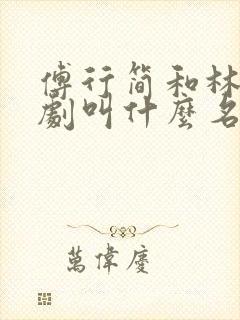 傅行简和林
劇叫什麼名
萬偉慶